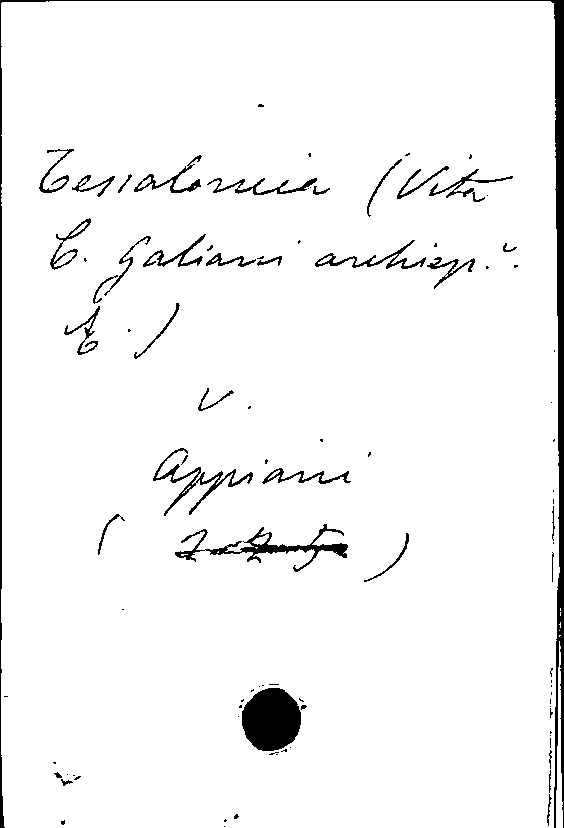 Tessalonicia (Vita
C. Galiani archiep.
T.)
V.
Appiani
( )